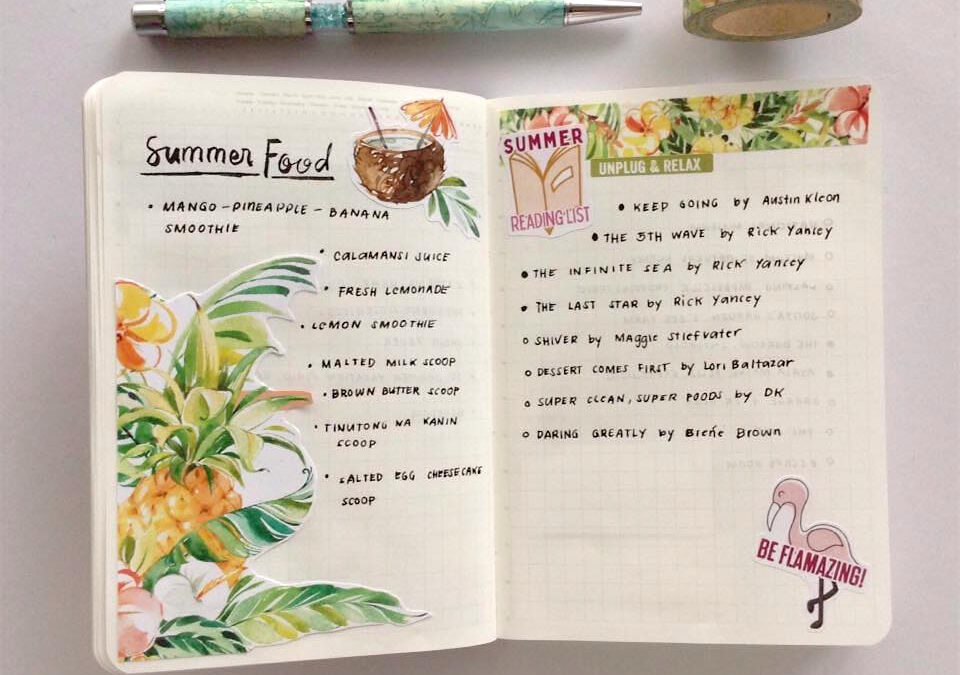 Summer Food
• MANGO - PINEAPPLE - BANANA
SMOOTHIE
• CALAMANSI JUICE
• FRESH LEMONADE
• LEMON SMOOTHIE
• MALTED MILK SCOOP
• BROWN BUTTER SCOOP
• TINUTONG NA KANIN
SCOOP
• SALTED EGG CHEESECAKE
SCOOP
SUMMER
READING LIST
UNPLUG & RELAX
• KEEP GOING by Austin Kleon
• THE 5TH WAVE by Rick Yancey
• THE INFINITE SEA by Rick Yancey
• THE LAST STAR by Rick Yancey
○ SHIVER by Maggie Stiefvater
○ DESSERT COMES FIRST by Lori Baltazar
○ SUPER CLEAN, SUPER FOODS by DK
○ DARING GREATLY by Brene Brown
BE FLAMAZING!